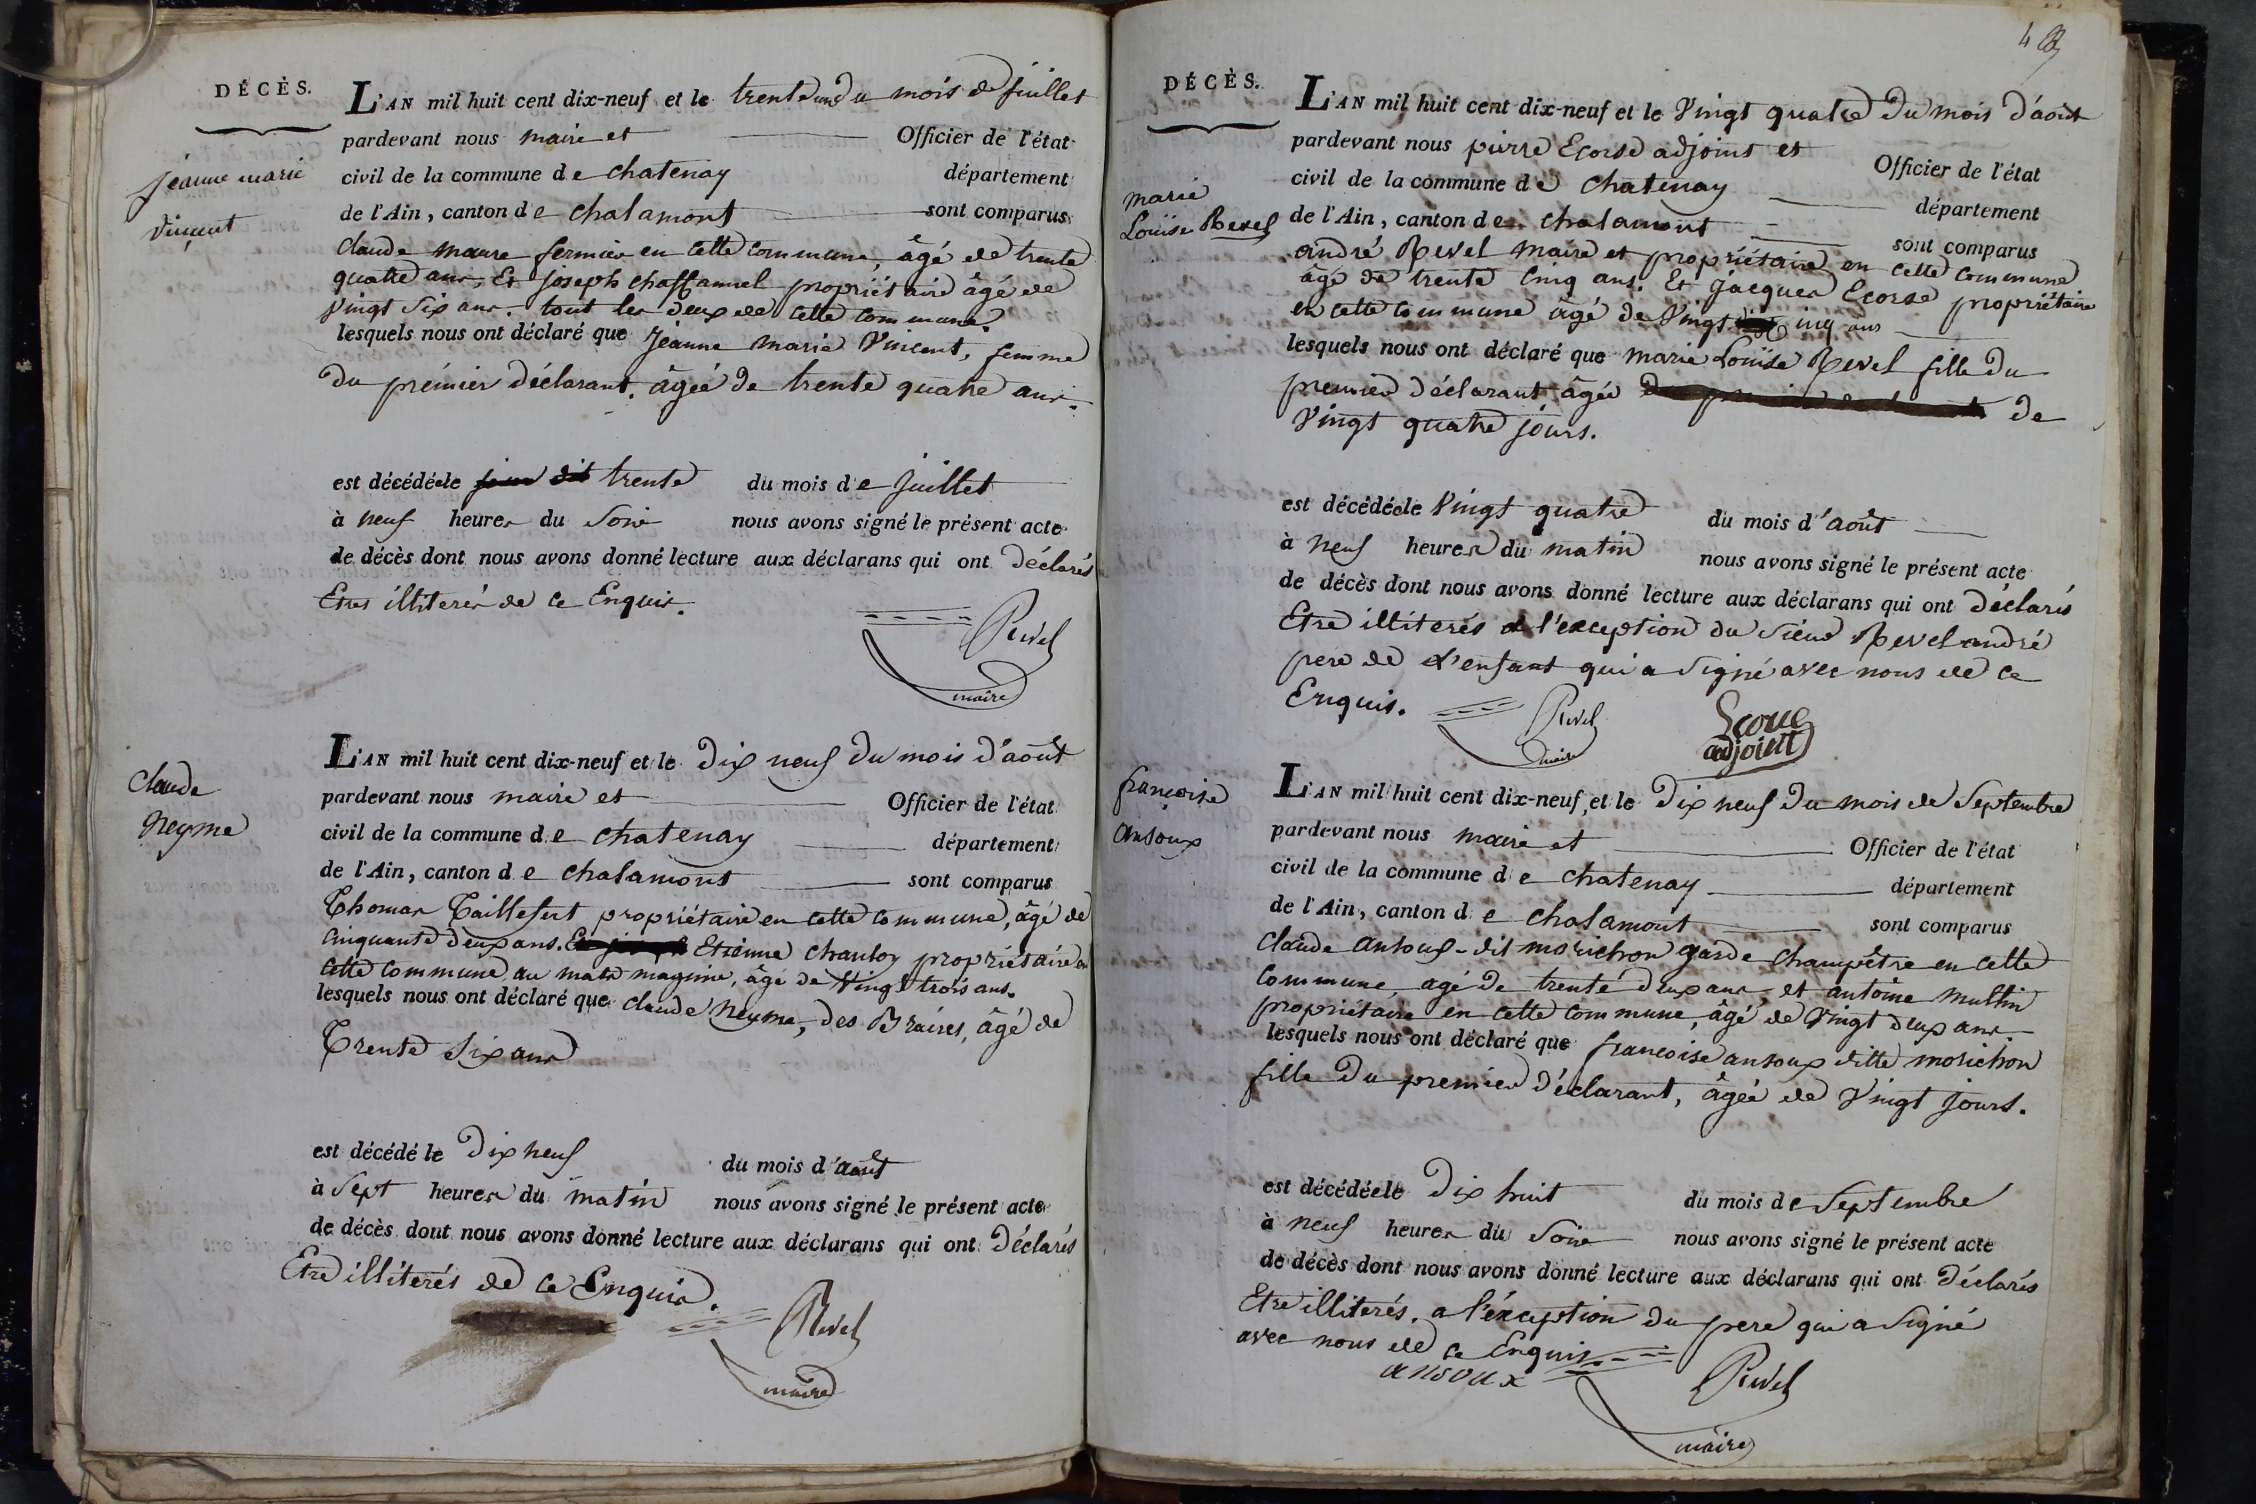 DÉCÈS.
L'AN mil huit cent dix-neuf et le trente un du mois de juillet
pardevant nous maire et Officier de l'état
civil de la commune de chatenay département
de l'Ain, canton de chalamont sont comparus
jéanne marie
vincent
Claude maure fermier en cette commune, âgé de trente
quatre ans, Et joseph chaffannel propriétaire âgé de
Vingt six ans. tout les deux de cette commune.
lesquels nous ont déclaré que jéanne marie Vincent, femme
du prémiér déclarant. âgéé de trente quatre ans.
est décédée le jour dit trente du mois de juillet
à neuf heures du Soir nous avons signé le présent acte
de décès dont nous avons donné lecture aux déclarans qui ont Déclarés
Etres illiterés de ce Enquis.
Revel
maire
L'AN mil huit cent dix-neuf et le Dix neuf du mois d'août
Claude
Neyme
pardevant nous maire et Officier de l'état
civil de la commune de chatenay département
de l'Ain, canton de chalamont sont comparus
Thomas Taillefert propriétaire en cette commune, âgé de
Cinquante deux ans. Etienne chanloy propriétaire en
cette commune au mate magnine, âgé de Vingt trois ans.
lesquels nous ont déclaré que claude Neyme, des Braires, âgé de
Trente Six ans
est décédé le Dix neuf du mois d'août
à Sept heures du matin nous avons signé le présent acte
de décès dont nous avons donné lecture aux déclarans qui ont Déclarés
Etre illiterés de ce Enquis.
Revel
maire
DÉCÈS.
L'AN mil huit cent dix-neuf et le Vingt quatre du mois d'août
pardevant nous pierre Ecorse adjoint et Officier de l'état
civil de la commune de chatenay département
marie
Louise Revel
de l'Ain, canton de chalamont sont comparus
andré Revel maire et propriétaire en cette commune
âgé de trente Cinq ans. Et jacques Ecorse propriétaire
en cette commune âgé de Vingt cinq ans
lesquels nous ont déclaré que marie Louise Revel fille du
premier déclarant âgée de
Vingt quatre jours.
est décédée le Vingt quatre du mois d'août
à neuf heures du matin nous avons signé le présent acte
de décès dont nous avons donné lecture aux déclarans qui ont Déclarés
Etre illiterés a l'exception du Siéur Revel andré
pere de l'enfant qui a Signé avec nous de ce
Enquis.
Revel
maire
Ecorse
adjoint
françoise
ansoux
L'AN mil huit cent dix-neuf et le Dix neuf du mois de Septembre
pardevant nous maire et Officier de l'état
civil de la commune de chatenay département
de l'Ain, canton de chalamont sont comparus
Claude ansoux - dit morichon garde champêtre en cette
commune, agé de trente deux ans et antoine multin
propriétaire en cette commune, âgé de Vingt deux ans
lesquels nous ont déclaré que françoise ansoux ditte morichon
fille du premier déclarant, âgéé de Vingt jours.
est décédée le Dix huit du mois de Septembre
à neuf heures du Soir nous avons signé le présent acte
de décès dont nous avons donné lecture aux déclarans qui ont Déclarés
Etre illiterés. a l'éxception du pere qui a Signé
avec nous de ce Enquis
ansoux
Revel
maire